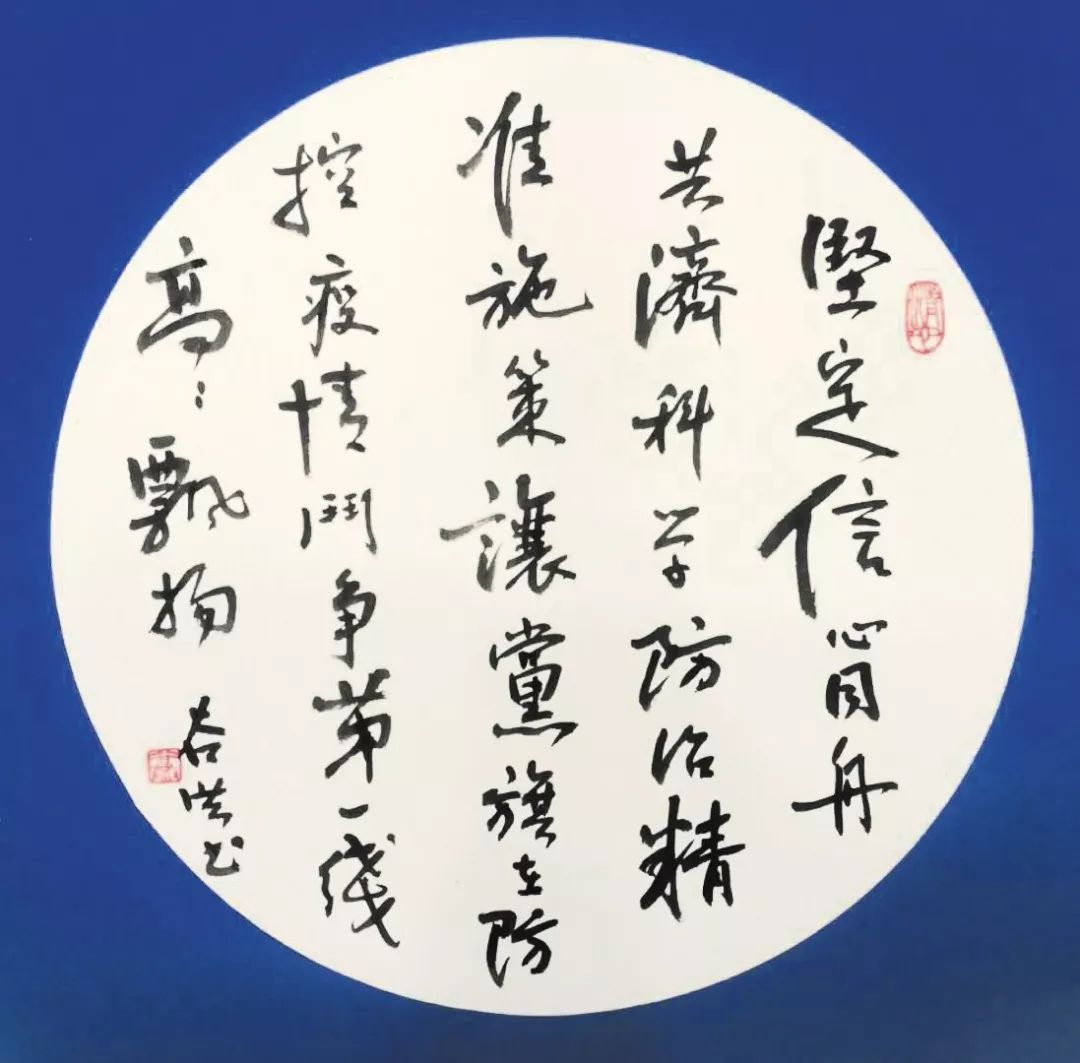 堅定信心同舟
共濟科学防治精
准施策讓黨旗在防
控疫情鬥争第一线
高〻飄扬
春洪书